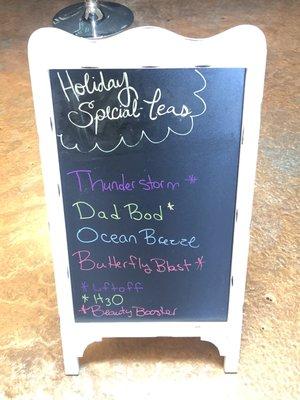 Holiday
Special-Teas
Thunderstorm *
Dad Bod *
Ocean Breeze
Butterfly Blast *
* Liftoff
* H3O
* Beauty Booster